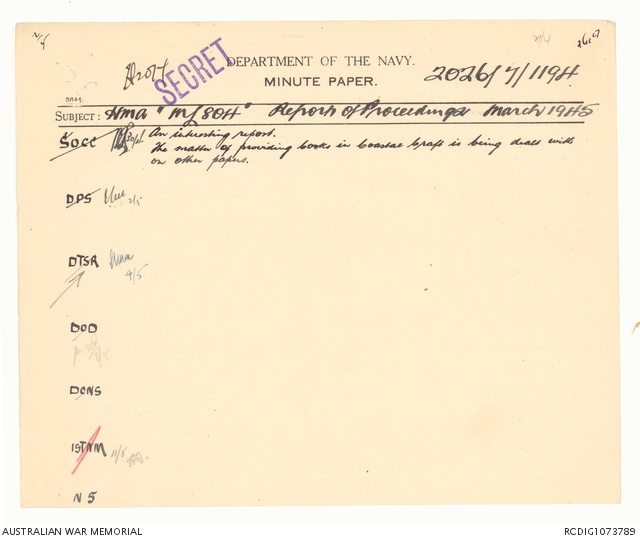 SECRET
DEPARTMENT OF THE NAVY.
MINUTE PAPER.
2026/7/1194
SUBJECT: HMA "ML 804" Report of Proceedings March 1945
SOCC 30/4 An interesting report.
The matter of providing Cooks in Coastal Craft is being dealt with
on other papers.
DPS 2/5
DTSR
9/5
DOD
DCNS
1STNM 11/5
N 5
AUSTRALIAN WAR MEMORIAL
RCDIG1073789